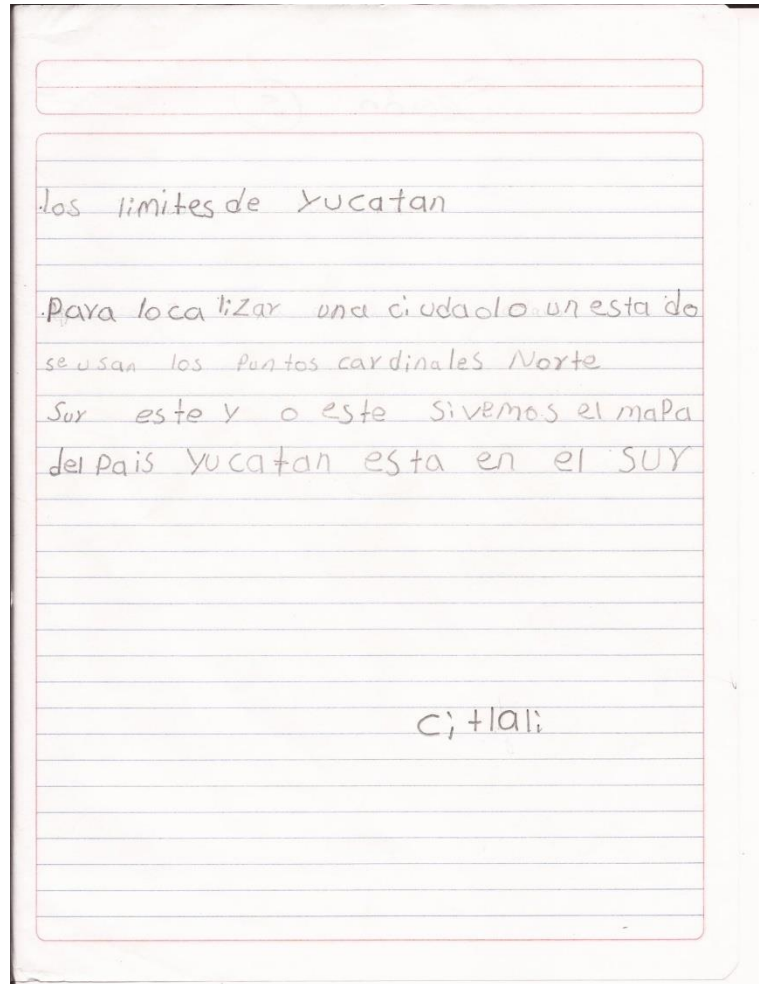 los limites de Yucatan
Para loca lizar una ciudad o un esta do
se usan los Puntos cardinales Norte
Sur este y o este Si vemos el mapa
del Pais Yucatan esta en el SUr
citlali